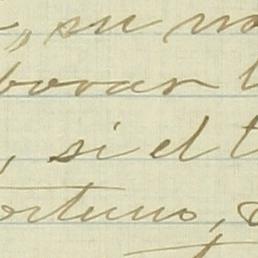 , su no
borar l
, si el t
ortuno, s